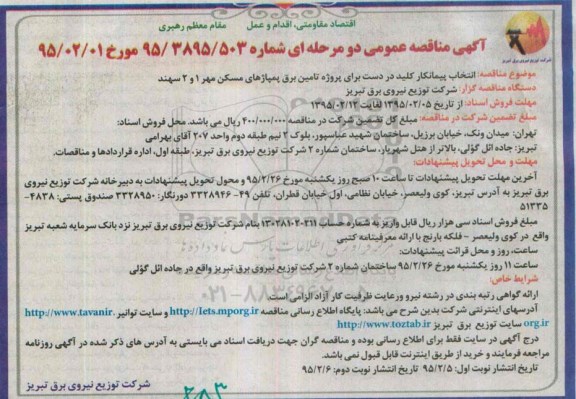 اقتصاد مقاومتی، اقدام و عمل مقام معظم رهبری
آگهی مناقصه عمومی دو مرحله ای شماره ۹۵/۳۸۹۵/۵۰۳ مورخ ۹۵/۰۲/۰۱
شرکت توزیع نیروی برق تبریز
موضوع مناقصه: انتخاب پیمانکار کلید در دست برای پروژه تامین برق پمپاژهای مسکن مهر ۱ و ۲ سهند
دستگاه مناقصه گزار: شرکت توزیع نیروی برق تبریز
مهلت فروش اسناد: از تاریخ ۱۳۹۵/۰۲/۰۵ لغایت ۱۳۹۵/۰۲/۱۲
مبلغ تضمین شرکت در مناقصه: مبلغ کل تضمین شرکت در مناقصه ۴۰۰/۰۰۰/۰۰۰ ریال می باشد. محل فروش اسناد:
تهران: میدان ونک، خیابان برزیل، ساختمان شهید عباسپور، بلوک ۲ نیم طبقه دوم واحد ۲۰۷ آقای بهرامی
تبریز: جاده ائل گؤلی، بالاتر از هتل شهریار، ساختمان شماره ۲ شرکت توزیع نیروی برق تبریز، طبقه اول، اداره قراردادها و مناقصات.
مهلت و محل تحویل پیشنهادات:
آخرین مهلت تحویل پیشنهادات تا ساعت ۱۰ صبح روز یکشنبه مورخ ۹۵/۲/۲۶ و محول تحویل پیشنهادات به دبیرخانه شرکت توزیع نیروی
برق تبریز به آدرس تبریز، کوی ولیعصر، خیابان نظامی، اول خیابان قطران، تلفن ۴۹-۳۳۲۸۹۴۶ دورنگار: ۳۳۲۸۹۵۰ صندوق پستی: ۴۸۳۸-
۵۱۳۳۵
مبلغ فروش اسناد سی هزار ریال قابل واریز به شماره حساب ۱۳۰۲۸۱۰۲۰۲۱۱ بنام شرکت توزیع نیروی برق تبریز نزد بانک سرمایه شعبه تبریز
واقع در کوی ولیعصر - فلکه بارنج با ارائه معرفینامه کتبی
ساعت، روز و محل قرائت پیشنهادات:
ساعت ۱۱ روز یکشنبه مورخ ۹۵/۲/۲۶ ساختمان شماره ۲ شرکت توزیع نیروی برق تبریز واقع در جاده ائل گؤلی
شرایط خاص:
ارائه گواهی رتبه بندی در رشته نیرو و رعایت ظرفیت کار آزاد الزامی است.
آدرسهای اینترنتی شرکت بدین شرح می باشد: پایگاه اطلاع رسانی مناقصه http://Iets.mporg.ir و سایت توانیر http://www.tavanir.
org.ir سایت توزیع برق تبریز http://www.toztab.ir
درج آگهی در سایت فقط برای اطلاع رسانی بوده و مناقصه گران جهت دریافت اسناد می بایستی به آدرس های ذکر شده در آگهی روزنامه
مراجعه فرمایند و خرید از طریق اینترنت قابل قبول نمی باشد.
تاریخ انتشار نوبت اول: ۹۵/۲/۵ تاریخ انتشار نوبت دوم: ۹۵/۲/۶
شرکت توزیع نیروی برق تبریز
ParsNamadData
۰۲۱-۸۸۳۴۹۶۷۰